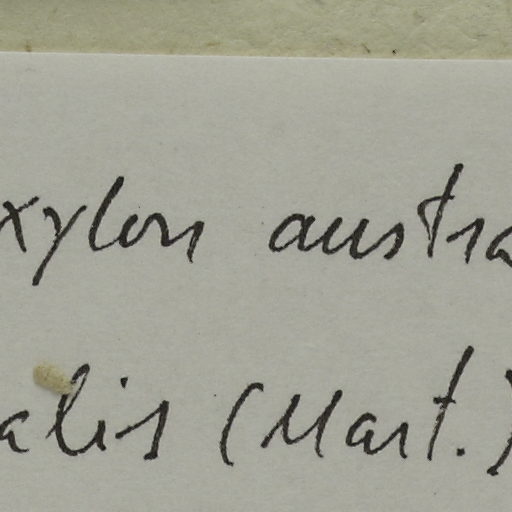 xylon austra
alis (Mart.)